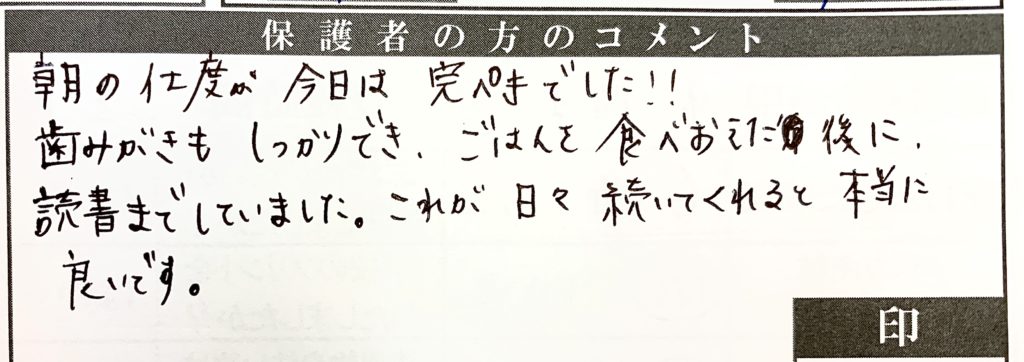 保護者の方のコメント
朝の仕度が 今日は 完ぺきでした!!
歯みがきも しっかりでき、ごはんを 食べおえた 後に、
読書までしていました。これが 日々 続いてくれると 本当に
良いです。
印